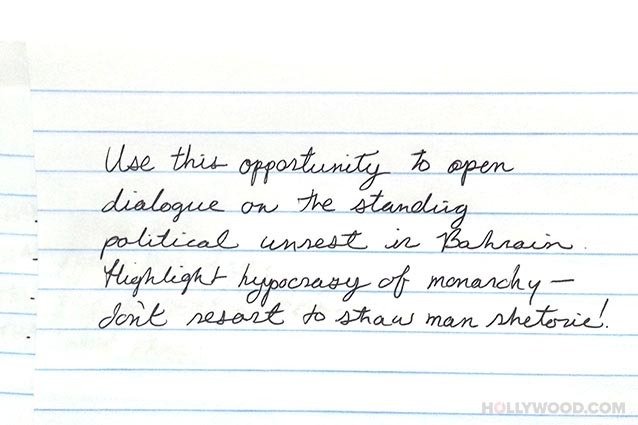 Use this opportunity to open
dialogue on the standing
political unrest in Bahrain.
Highlight hypocrasy of monarchy —
don't resort to straw man rhetoric!
HOLLYWOOD.COM